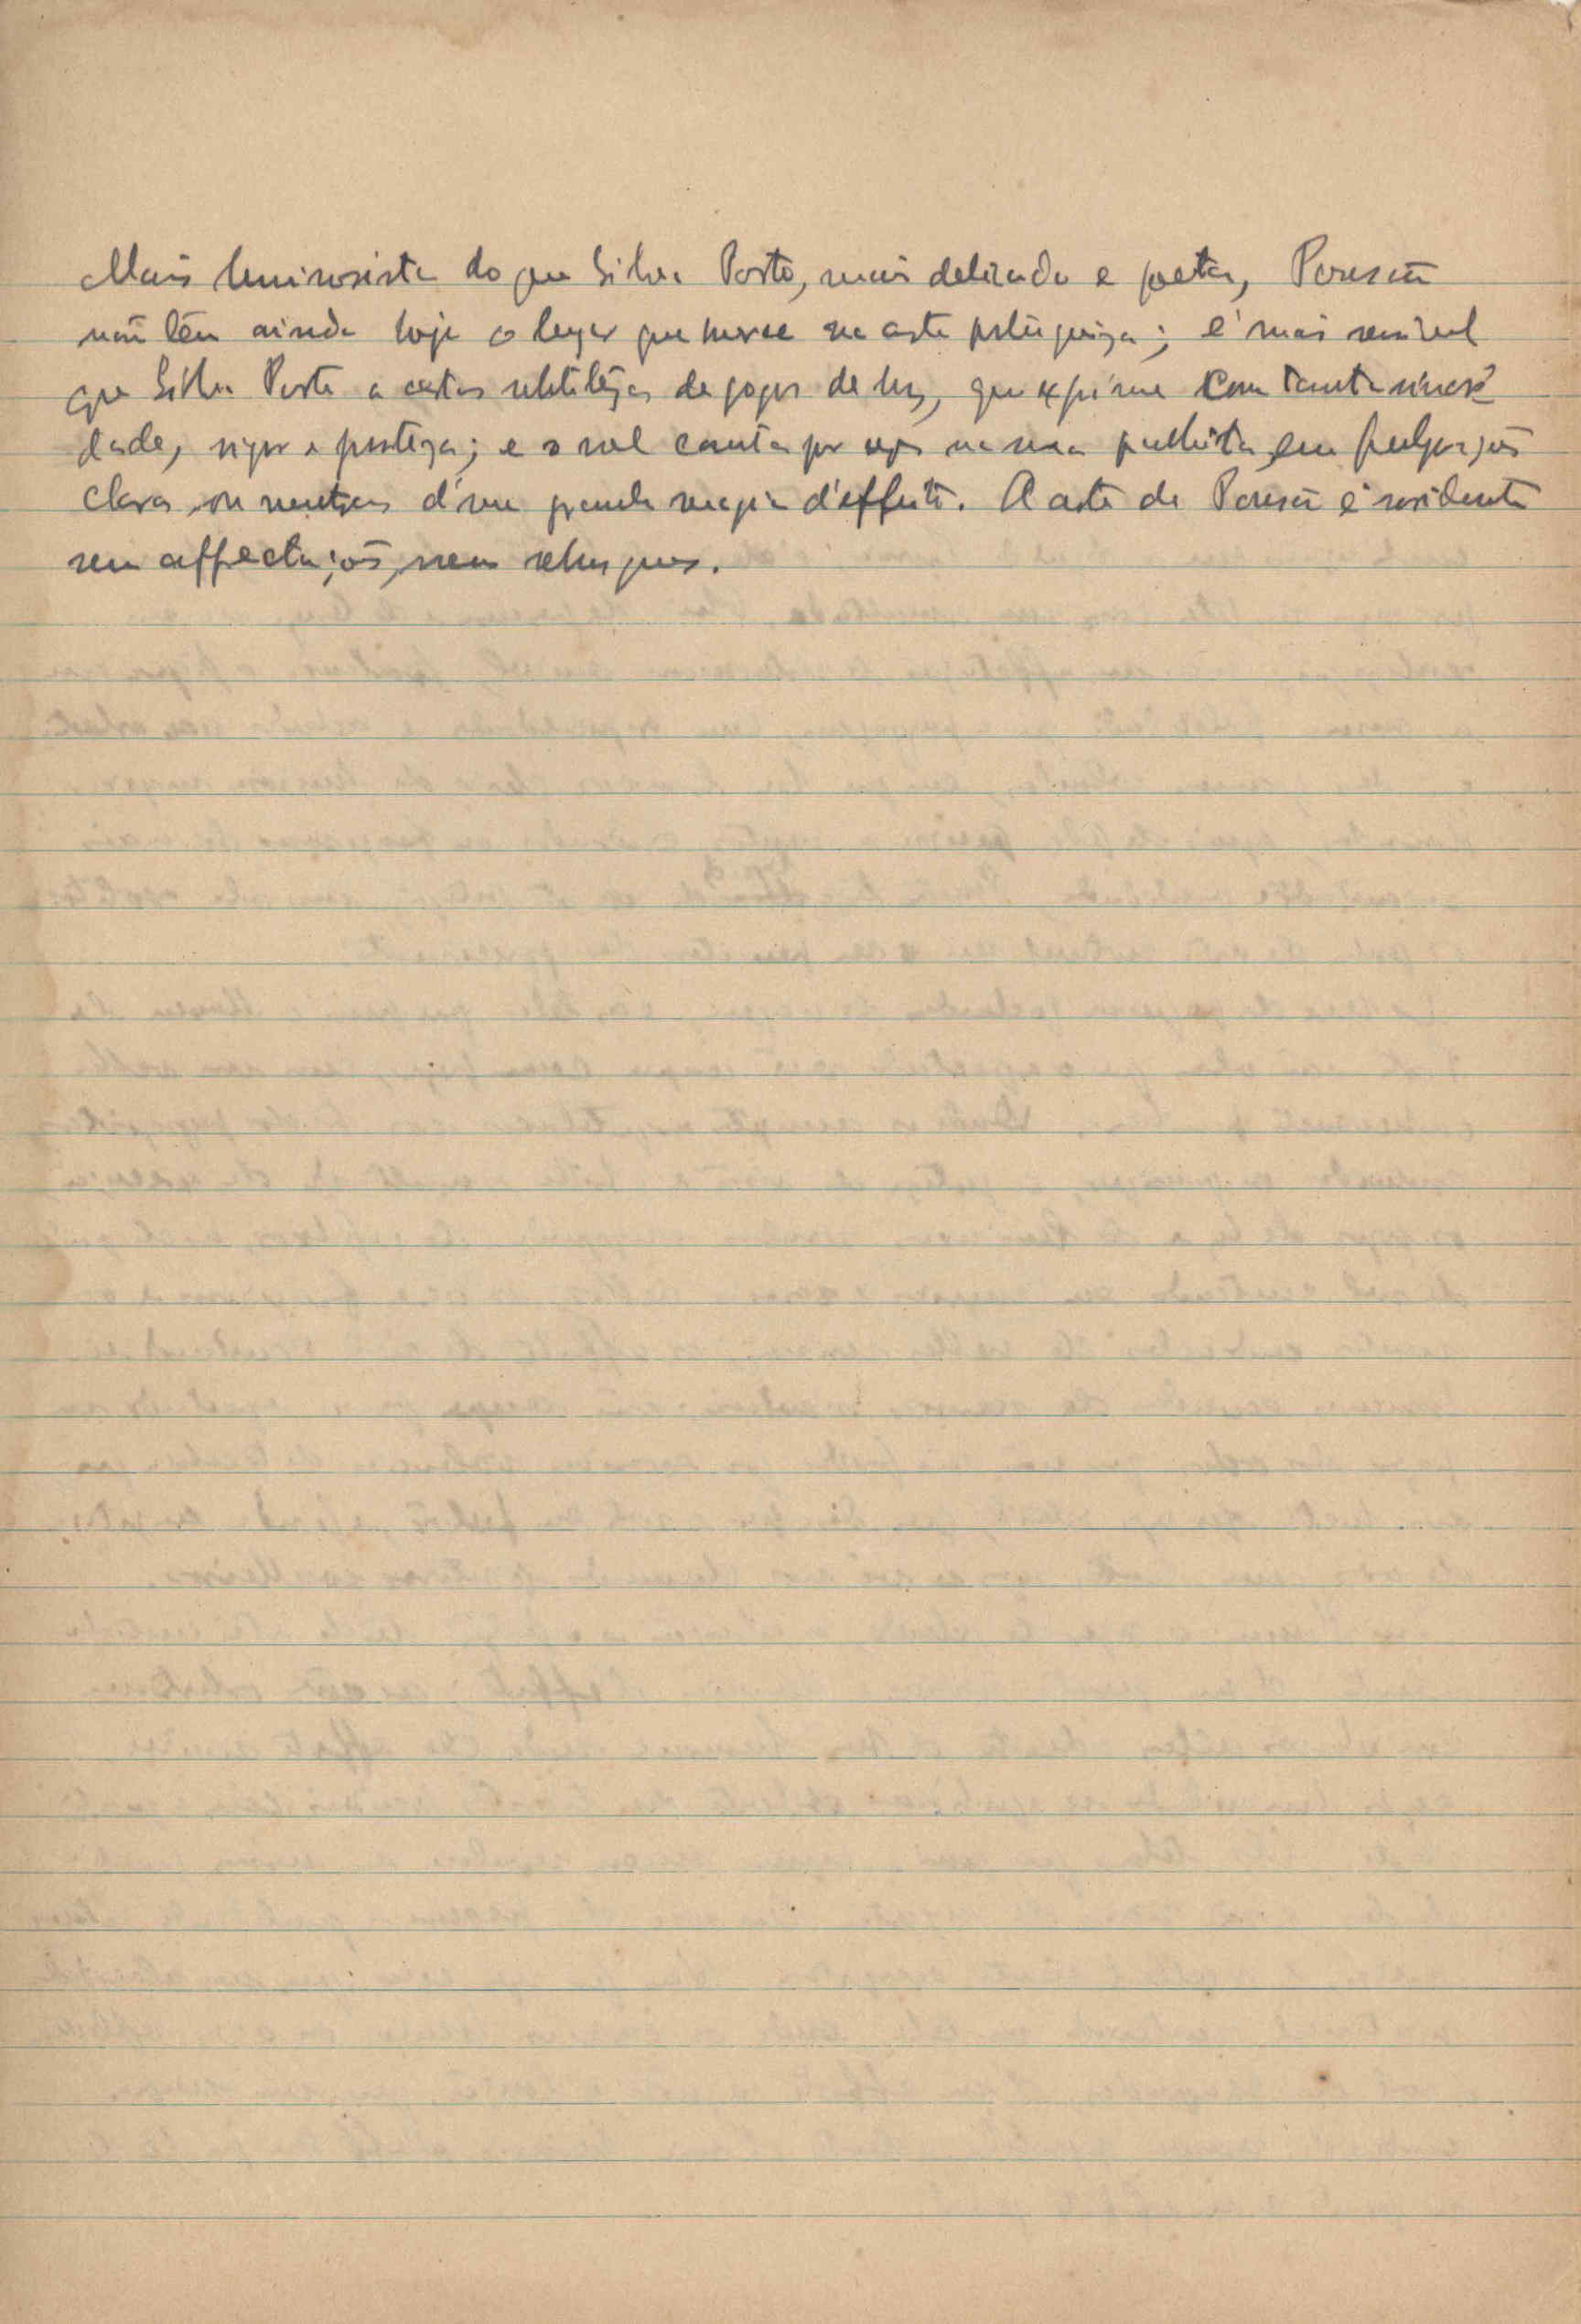 Mais luminosista do que Silva Porto, mais delicado e poeta, Pousão
não têm ainda hoje o lugar que merece na arte portuguêza; é mais sensivel
que Silva Porto a certas subtilêzas de jogos de luz, que exprime com tanta sinceri
dade, vigor e justeza; e o sol canta por vezes na sua palheta, em fulgurações
claras, ou neutras d'uma grande magia d'effeito. A arte de Pousão é
sem affectações, nem rebusques.